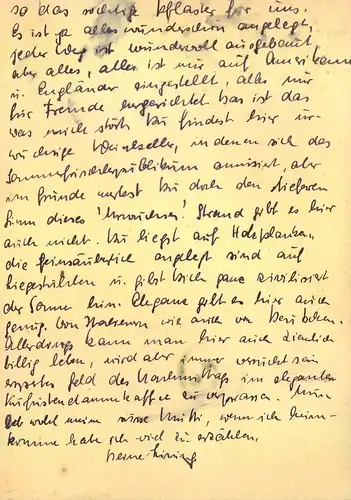 so das richtige Pflaster für uns.
Es ist ja alles wunderschön angelegt,
jeder Weg ist wundervoll ausgebaut,
aber alles, alles ist nur auf Amerikaner
u. Engländer eingestellt, alles nur
für Fremde hergerichtet das ist das
was mich stört. Du findest hier ur-
wüchsige Weinkeller, in denen sich das
Sommerfrischlerpublikum amüsiert, aber
im Grunde merkst Du doch den tieferen
Sinn dieses "Urwüchsen". Strand gibt es hier
auch nicht. Du liegst auf Holzplanken,
die feinsäuberlich angelegt sind auf
Liegestühlen u. gibst Dich ganz zivilisiert
der Sonne hin. Elegant geht es hier auch
genug. Von Italienern wie auch von Deutschen.
Allerdings kann man hier auch ziemlich
billig leben, wird aber immer versucht sein
erspartes Geld des Nachmittags im eleganten
Kurfürstendammkaffee zu verprassen. Nun
leb wohl meine süsse Mutti, wenn ich heim-
komme habe ich viel zu erzählen.
Deine